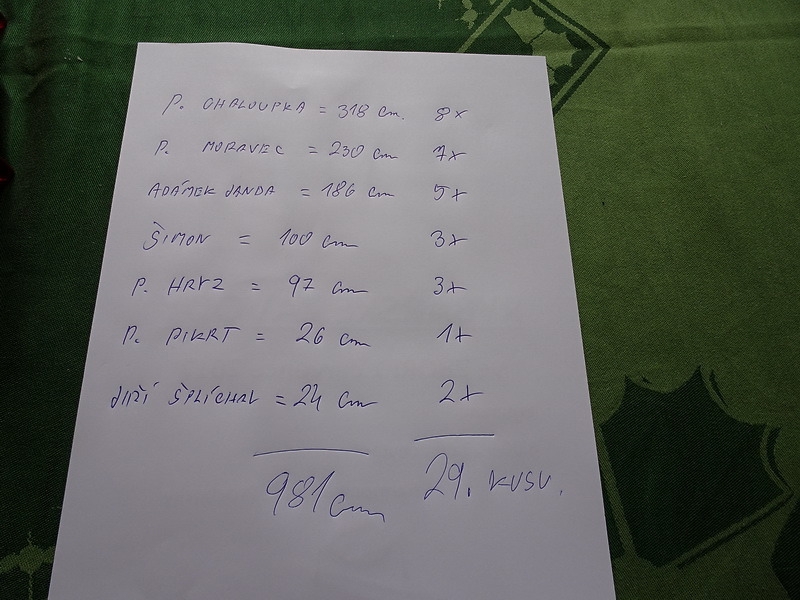 P. CHALOUPKA = 318 cm. 8x
P. MORAVEC = 230 cm 7x
ADÁMEK JANDA = 186 cm 5x
ŠIMON = 100 cm 3x
P. HRYZ = 97 cm 3x
P. PIKRT = 26 cm 1x
JIŘÍ ŠPLÍCHAL = 24 cm 2x
981 cm 29. KUSU.